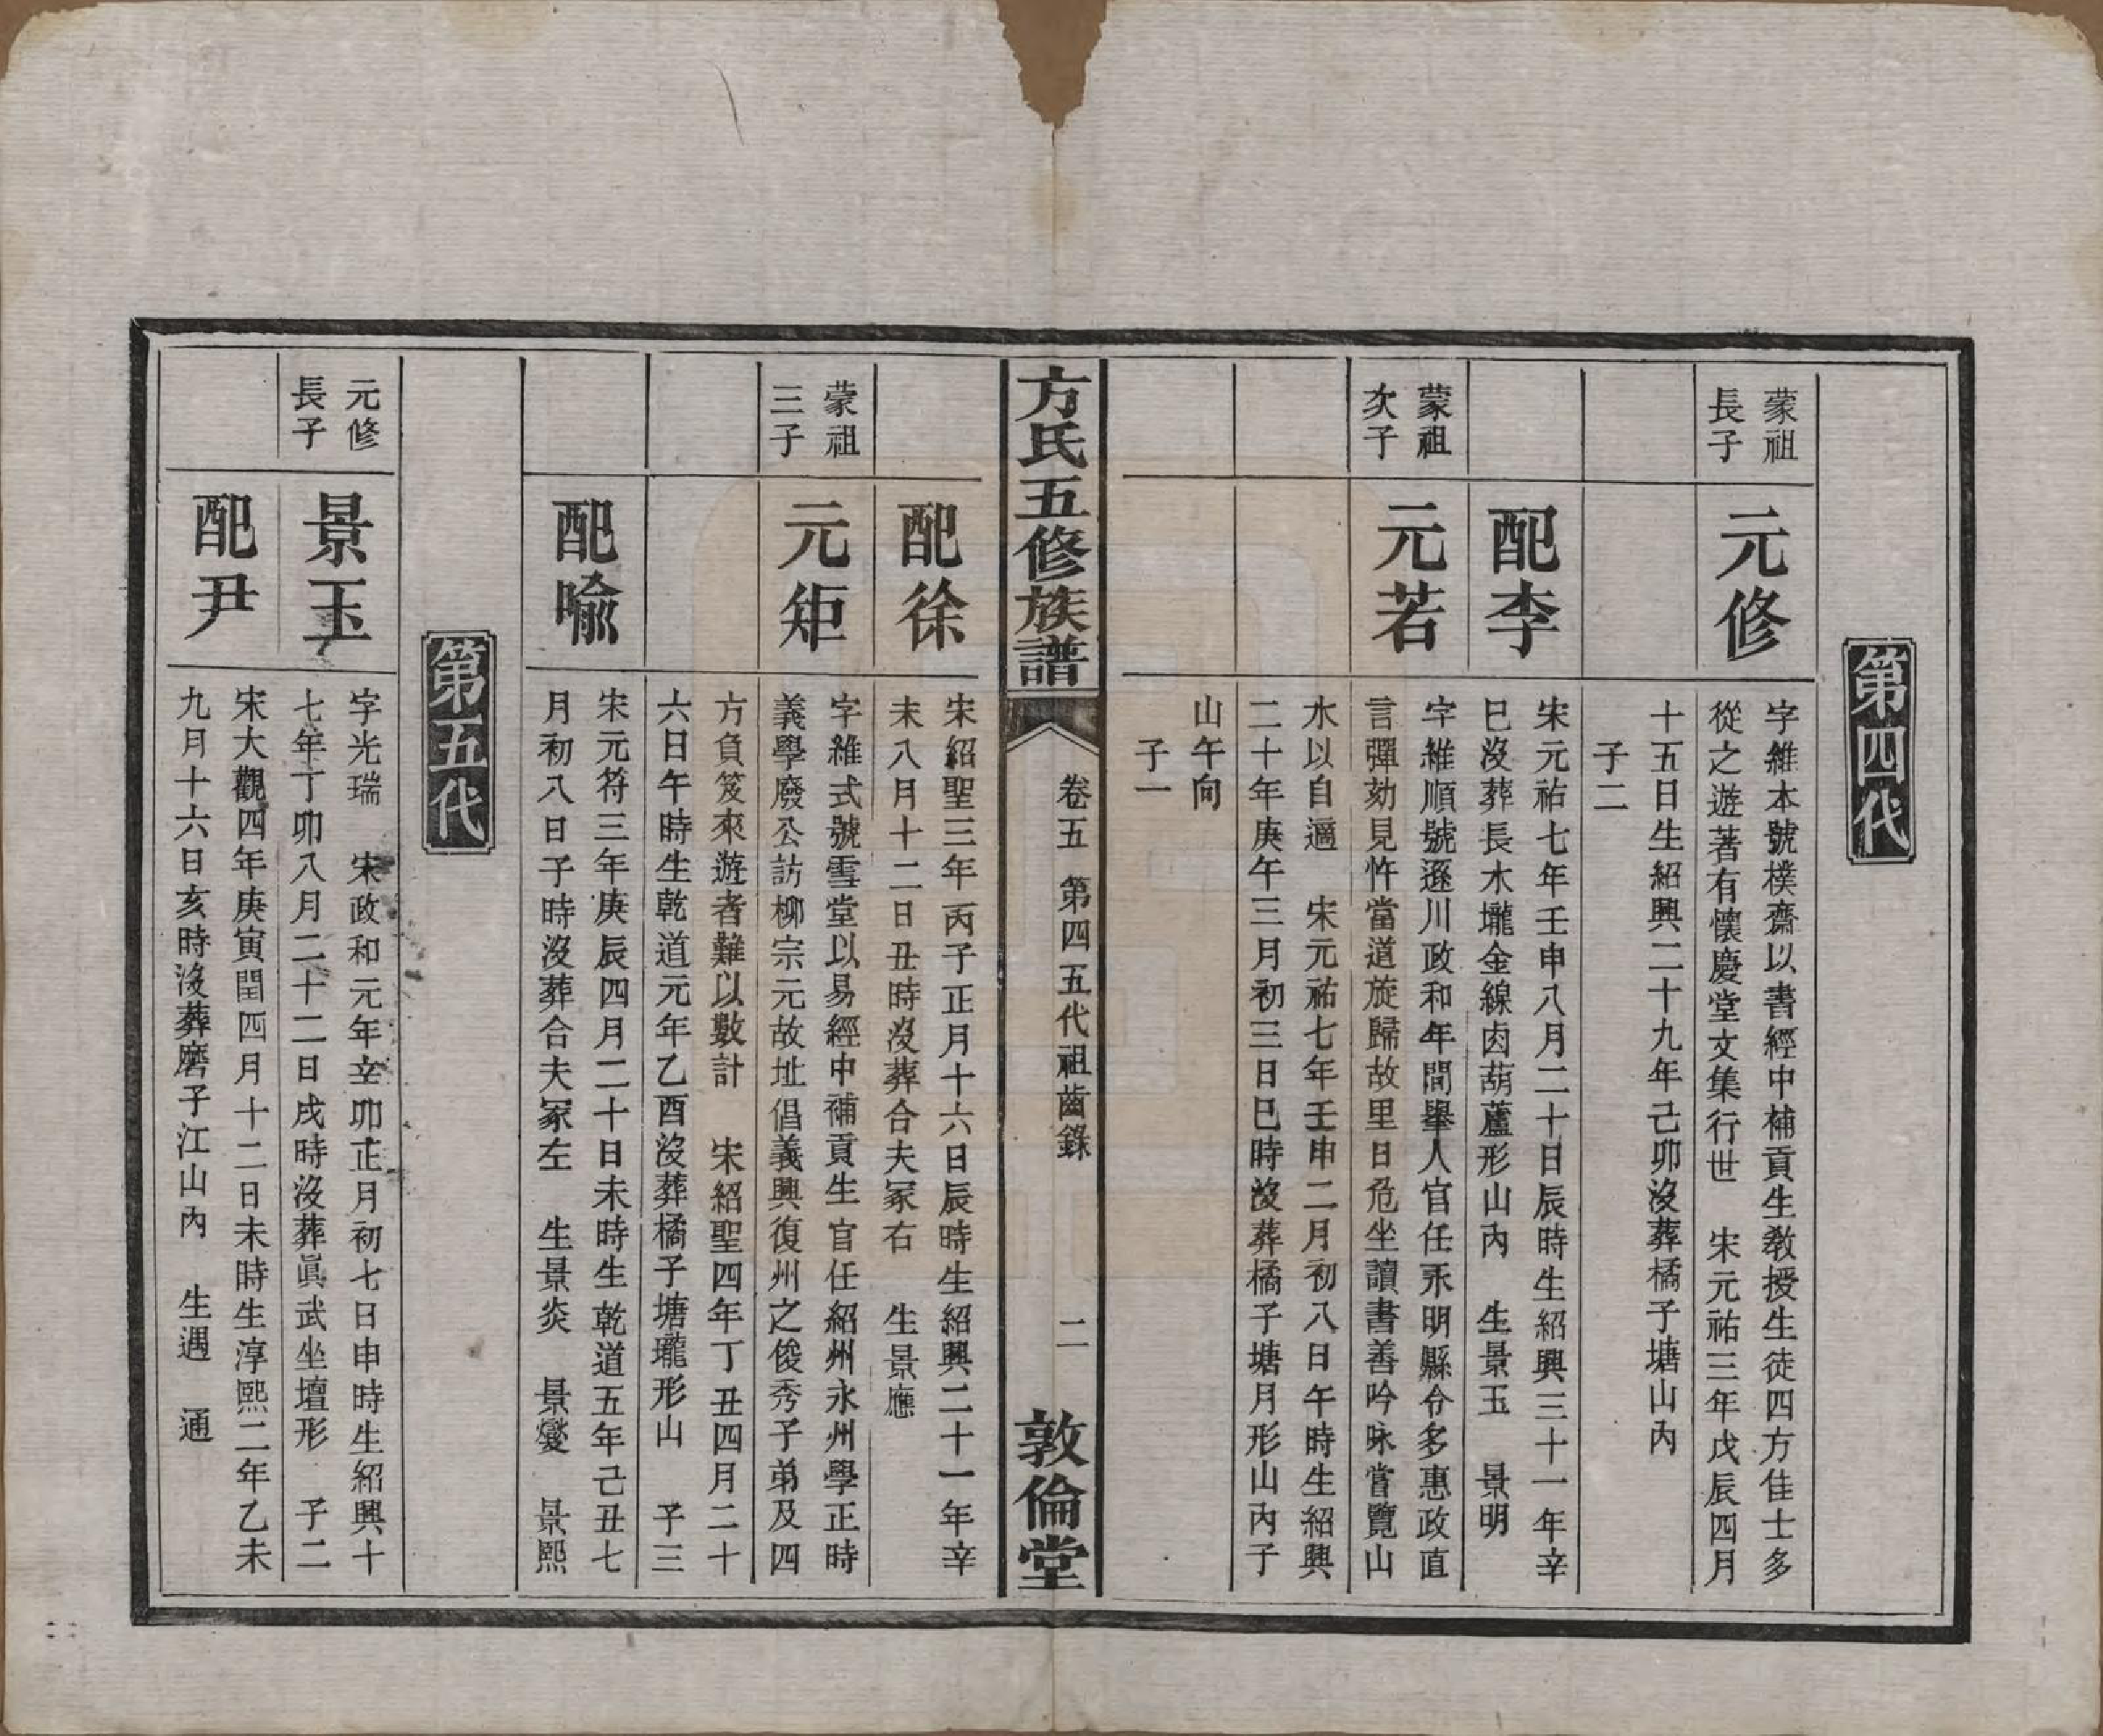 第四代
蒙祖
長子
元修
字維本號樸齋以書經中補貢生敎授生徒四方佳士多
從之遊著有懷慶堂文集行世　宋元祐三年戊辰四月
十五日生紹興二十九年己卯沒葬橘子塘山內
子二
配李
宋元祐七年壬申八月二十日辰時生紹興三十一年辛
巳沒葬長木壠金線囟葫蘆形山內　生景玉　景明
蒙祖
次子
元若
字維順號遜川政和年間舉人官任永明縣令多惠政直
言彈劾見忤當道旋歸故里日危坐讀書善吟咏嘗覽山
水以自適　宋元祐七年壬申二月初八日午時生紹興
二十年庚午三月初三日巳時沒葬橘子塘月形山內子
山午向
子一
方氏五修族譜
卷五　第四五代祖齒錄
二
敦倫堂
配徐
宋紹聖三年丙子正月十六日辰時生紹興二十一年辛
未八月十二日丑時沒葬合夫冢右　生景應
蒙祖
三子
元矩
字維式號雪堂以易經中補貢生官任紹州永州學正時
義學廢公訪柳宗元故址倡義興復州之俊秀子弟及四
方負笈來遊者難以數計　宋紹聖四年丁丑四月二十
六日午時生乾道元年乙酉沒葬橘子塘瓏形山　子三
配喩
宋元符三年庚辰四月二十日未時生乾道五年己丑七
月初八日子時沒葬合夫冢左　生景炎　景燮　景熙
第五代
元修
長子
景玉
字光瑞　宋政和元年辛卯正月初七日申時生紹興十
七年丁卯八月二十二日戌時沒葬眞武坐壇形　子二
配尹
宋大觀四年庚寅閏四月十二日未時生淳熙二年乙未
九月十六日亥時沒葬磨子江山內　生遇　通